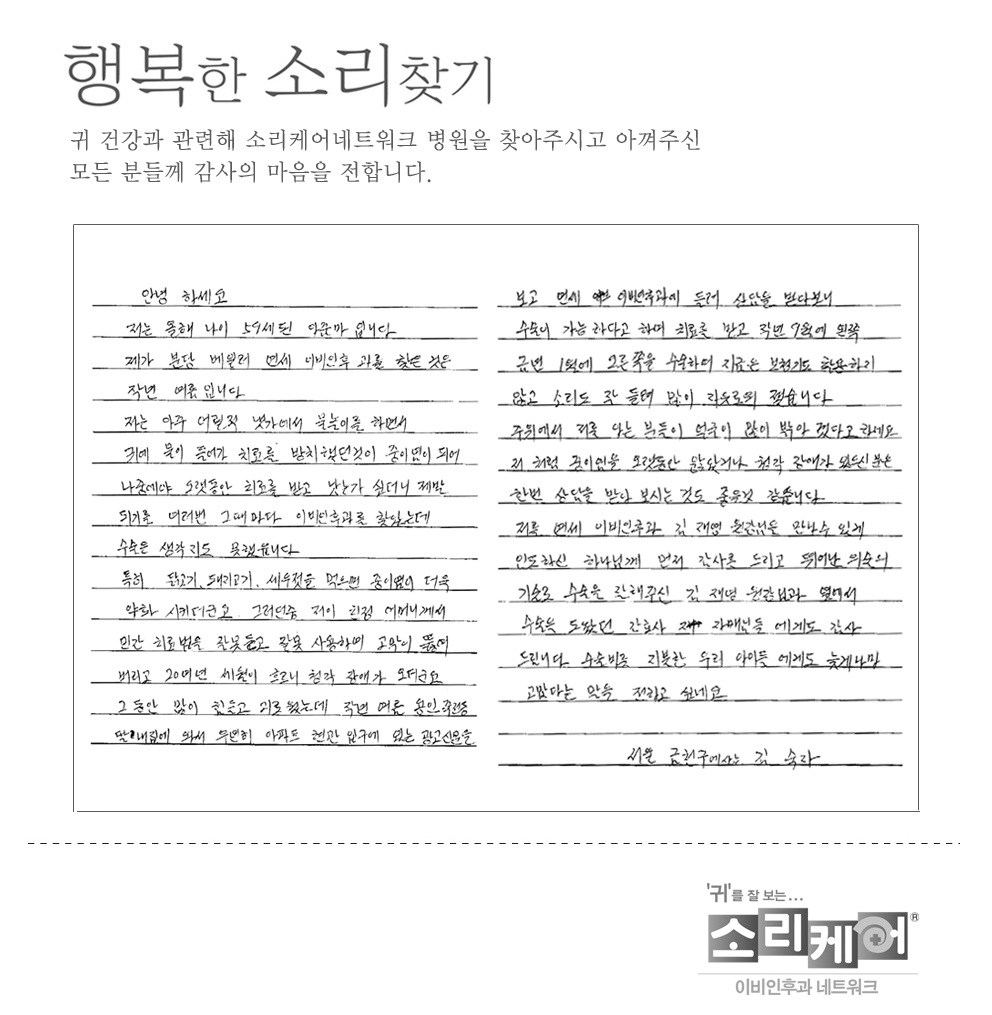 행복한 소리찾기
귀 건강과 관련해 소리케어네트워크 병원을 찾아주시고 아껴주신
모든 분들께 감사의 마음을 전합니다.
안녕 하세요
저는 올해 나이 59세된 아줌마 입니다
제가 분당 연세 이비인후 과를 찾은 것은
작년 여름 입니다
저는 아주 어릴적 냇가에서 물놀이를 하면서
귀에 물이 들어가 치료를 방치했던것이 중이염이 되어
나중에야 오랫동안 치료를 받고 낫는가 싶더니 재발
되기를 여러번 그때마다 이비인후과를 찾았는데
수술은 생각지도 못했습니다
특히 닭고기, 돼지고기, 새우젓을 먹으면 중이염이 더욱
악화 시키더군요 그러던중 저이 친정 어머니께서
민간 치료법을 잘못듣고 잘못 사용하여 고막이 뚫려
버리고 20여년 세월이 흐르니 청각 장애가 오더군요
그동안 많이 힘들고 괴로웠는데 작년 여름 용인
딸내집에 와서 우연히 아파트 현관 입구에 있는 광고신문을
보고 연세 이비인후과에 들려 상담을 받다보니
수술이 가능하다고 하며 치료를 받고 작년 9월에 왼쪽
금년 1월에 오른쪽을 수술하여 지금은 보청기도 착용하지
않고 소리도 잘 들려 많이 자유로워 졌습니다
주위에서 저를 아는 분들이 얼굴이 많이 밝아 졌다고 하세요
저 처럼 중이염을 오랫동안 앓았거나 청각 장애가 있으신 분은
한번 상담을 받아 보시는 것도 좋을것 같습니다
저를 연세 이비인후과 김 재영 원장님을 만나수 있게
인도하신 하나님께 먼저 감사를 드리고 뛰어난 의술의
기술로 수술을 잘해주신 김 재영 원장님과 옆에서
수술을 도왔던 간호사 자매님들 에게도 감사
드립니다 수술비를 지불한 우리 아이들 에게도 늦게나마
고맙다는 말을 전하고 싶네요
서울 금천구에사는 김 숙자
'귀'를 잘 보는...
소리케어®
이비인후과 네트워크